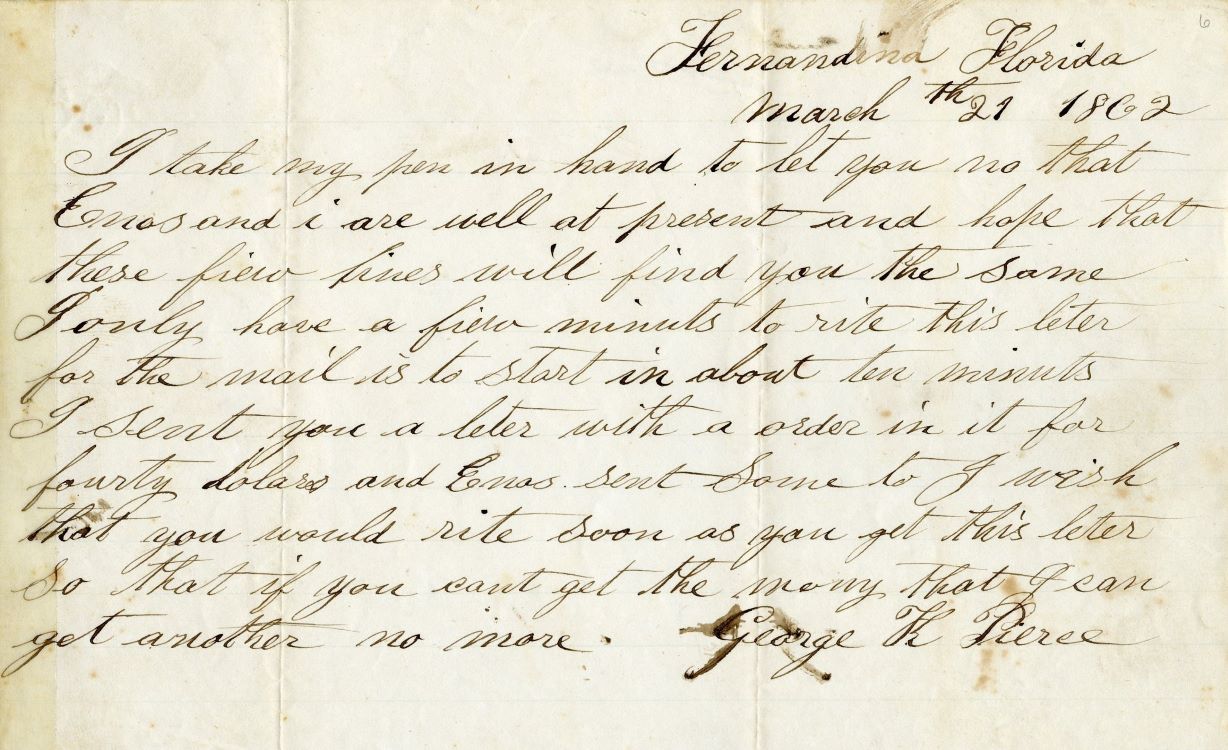 6
Fernandina Florida
March th 21 1862
I take my pen in hand to let you no that
Enos and i are well at present and hope that
these fiew lines will find you the same
I only have a fiew minuts to rite this leter
for the mail is to start in about ten minuts
I sent you a leter with a order in it for
fourty dolars and Enos sent Some to I wish
that you would rite soon as you get this leter
so that if you cant get the mony that I can
get another no more. George K Pierce